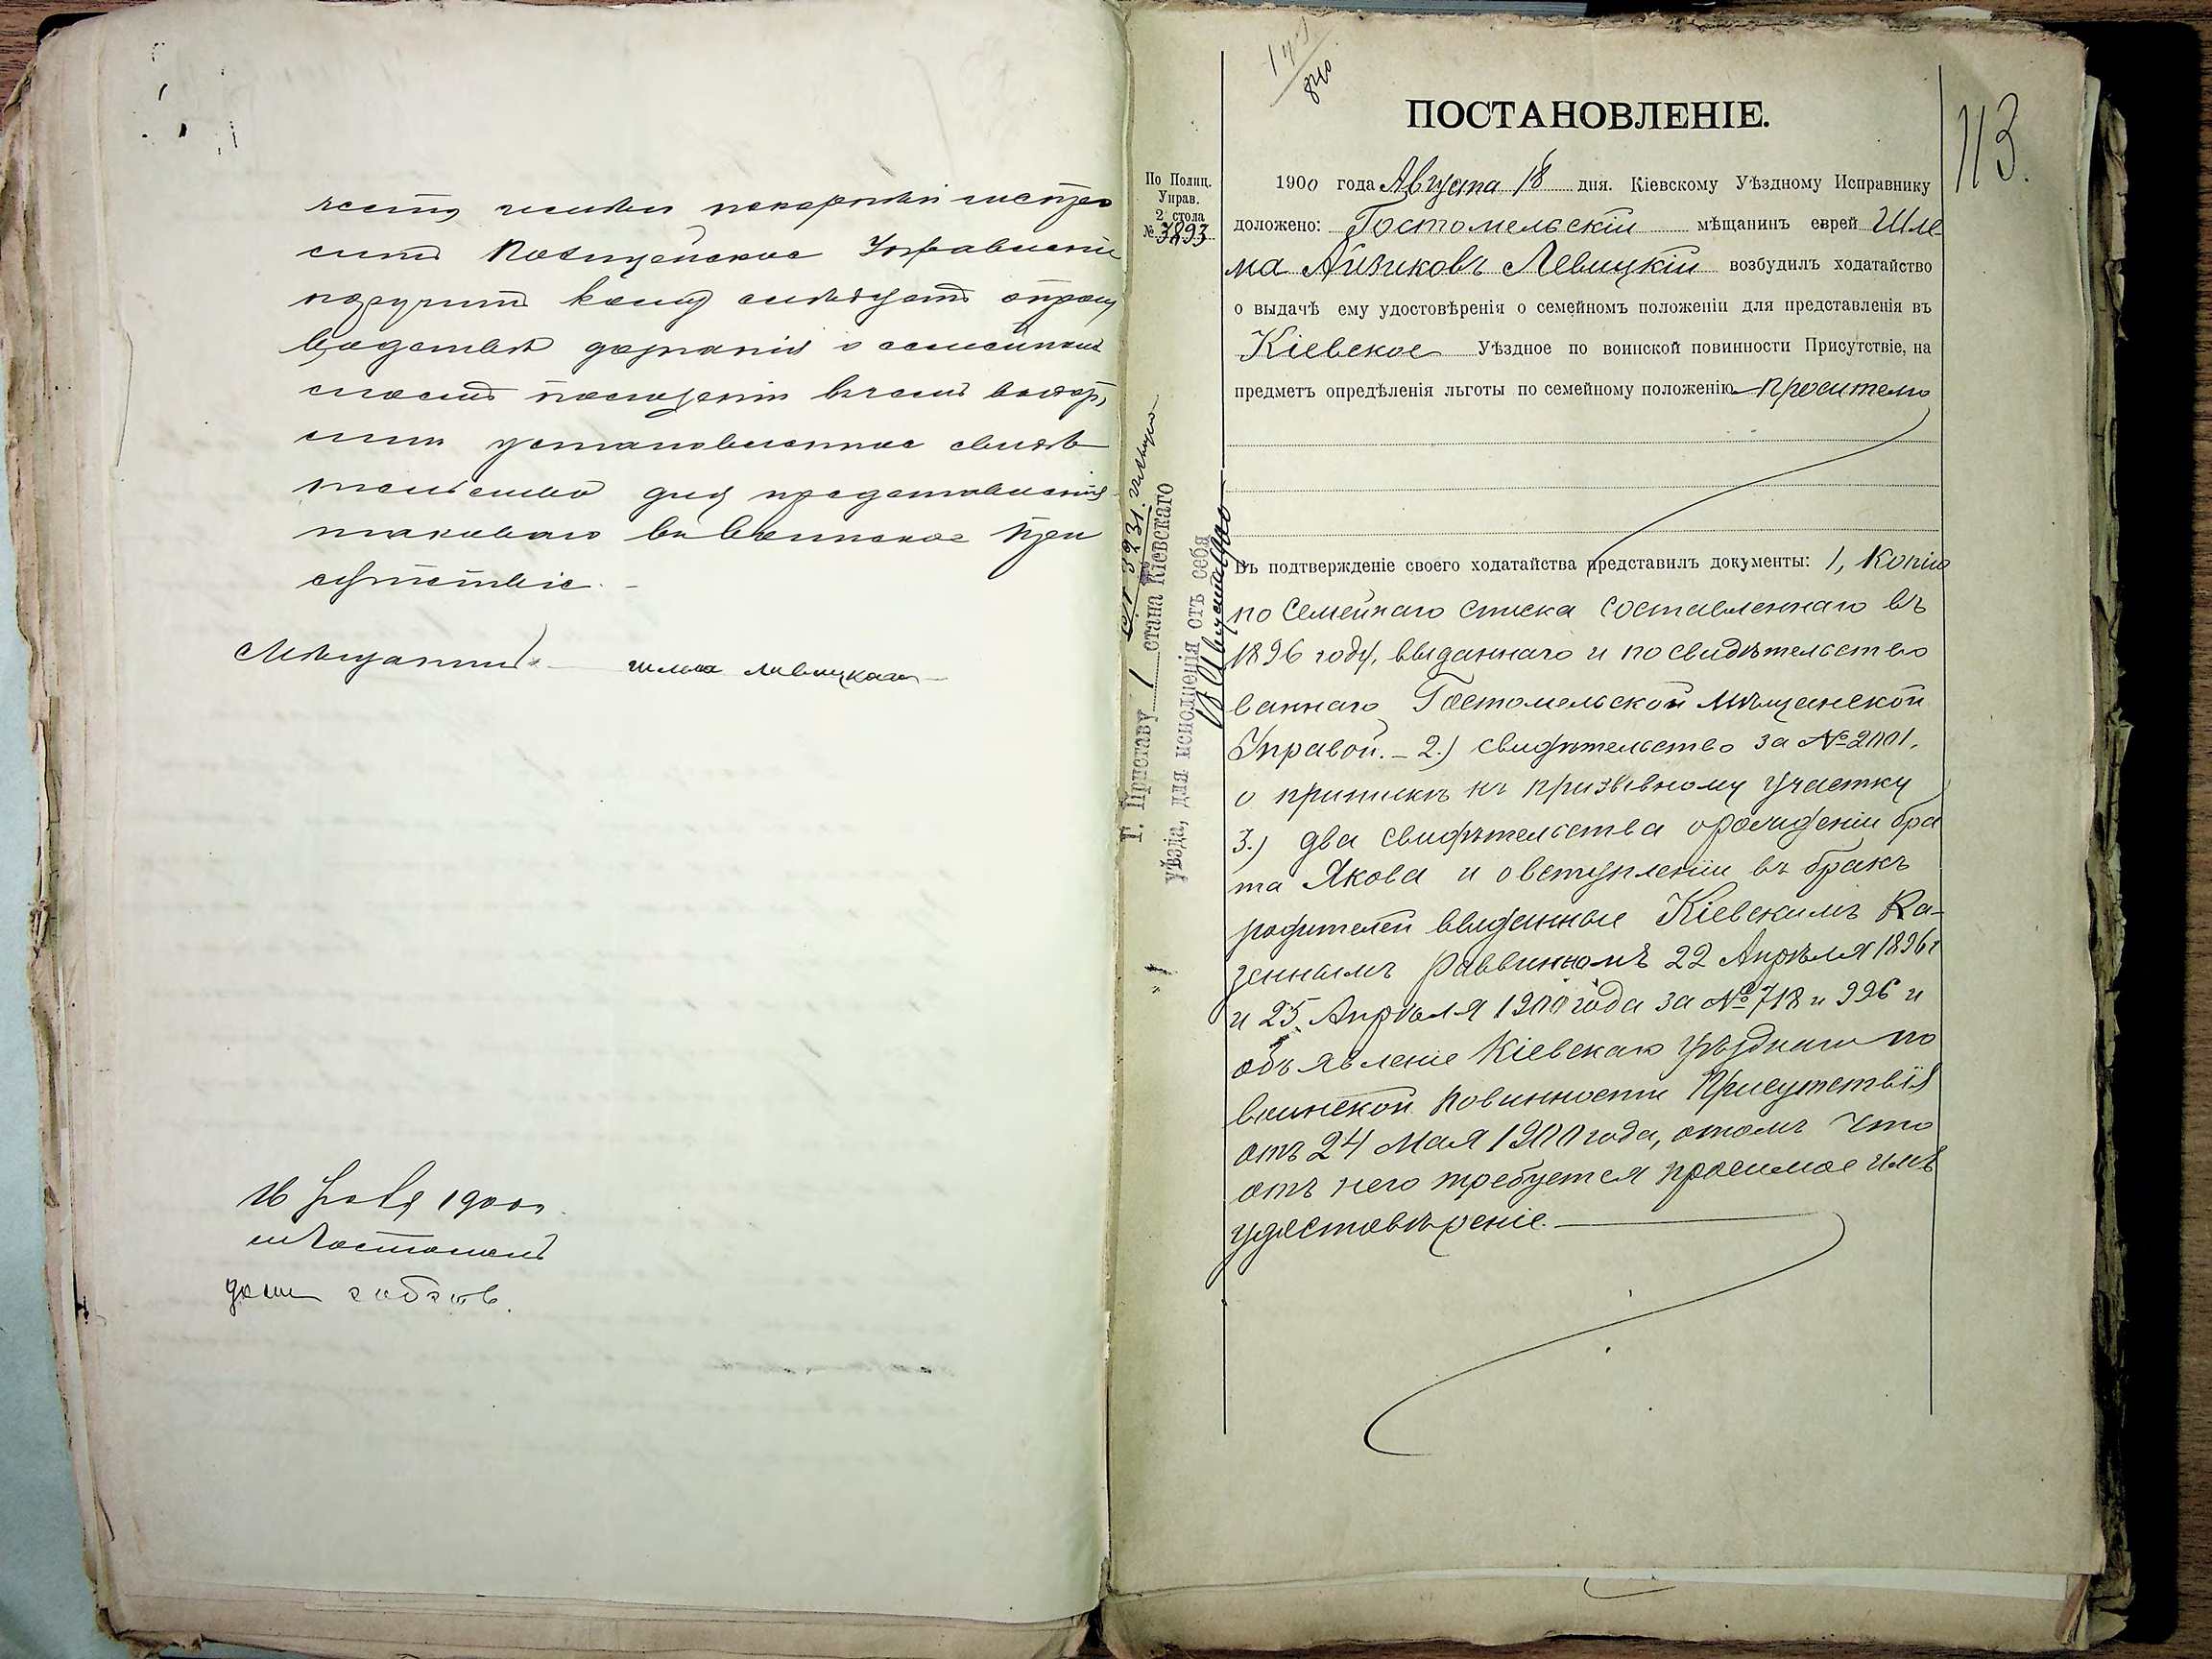 честь имею покорнѣйше просить
Полицейское Управленіе
поручить кому слѣдуетъ
дознанія о семейномъ
моемъ положеніи
установленное свидѣ
тельство для представленія
таковаго въ Воинское При
сутствіе. -
Мѣщанинъ - шлема Левицкій
1900
ПОСТАНОВЛЕНІЕ.
113.
840
По Полиц.
Управ.
2 стола
№ 3893
1900 года Августа 18 дня. Кіевскому Уѣздному Исправнику
доложено: Гостомельскій мѣщанинъ еврей Шле-
ма Айзиковъ Левицкій возбудилъ ходатайство
о выдачѣ ему удостовѣренія о семейномъ положеніи для представленія въ
Кіевское Уѣздное по воинской повинности Присутствіе, на
предметъ опредѣленія льготы по семейному положенію. Проситель
Въ подтвержденіе своего ходатайства представилъ документы: 1, Копію
по семейнаго списка составленнаго въ
1896 году, выданнаго и по свидѣтельство
ваннаго Гостомельской Мѣщанской
Управой. - 2.) свидѣтельство за № 2001,
о припискѣ къ призывному участку
3.) два свидѣтельства о рожденіи бра
та Якова и о вступленіи въ бракъ
родителей выданные Кіевскимъ Ка-
зеннымъ раввиномъ 22 Апрѣля 1896 г
и 25 Апрѣля 1900 года за № 718 и 996 и
объявленіе Кіевскаго уѣзднаго по
воинской повинности Присутствія
отъ 24 Мая 1900 года, о томъ что
отъ него требуется просимое имъ
удостовѣреніе. -
Г. Приставу 1 стана Кіевскаго
уѣзда, для исполненія отъ себя
Августа 1900